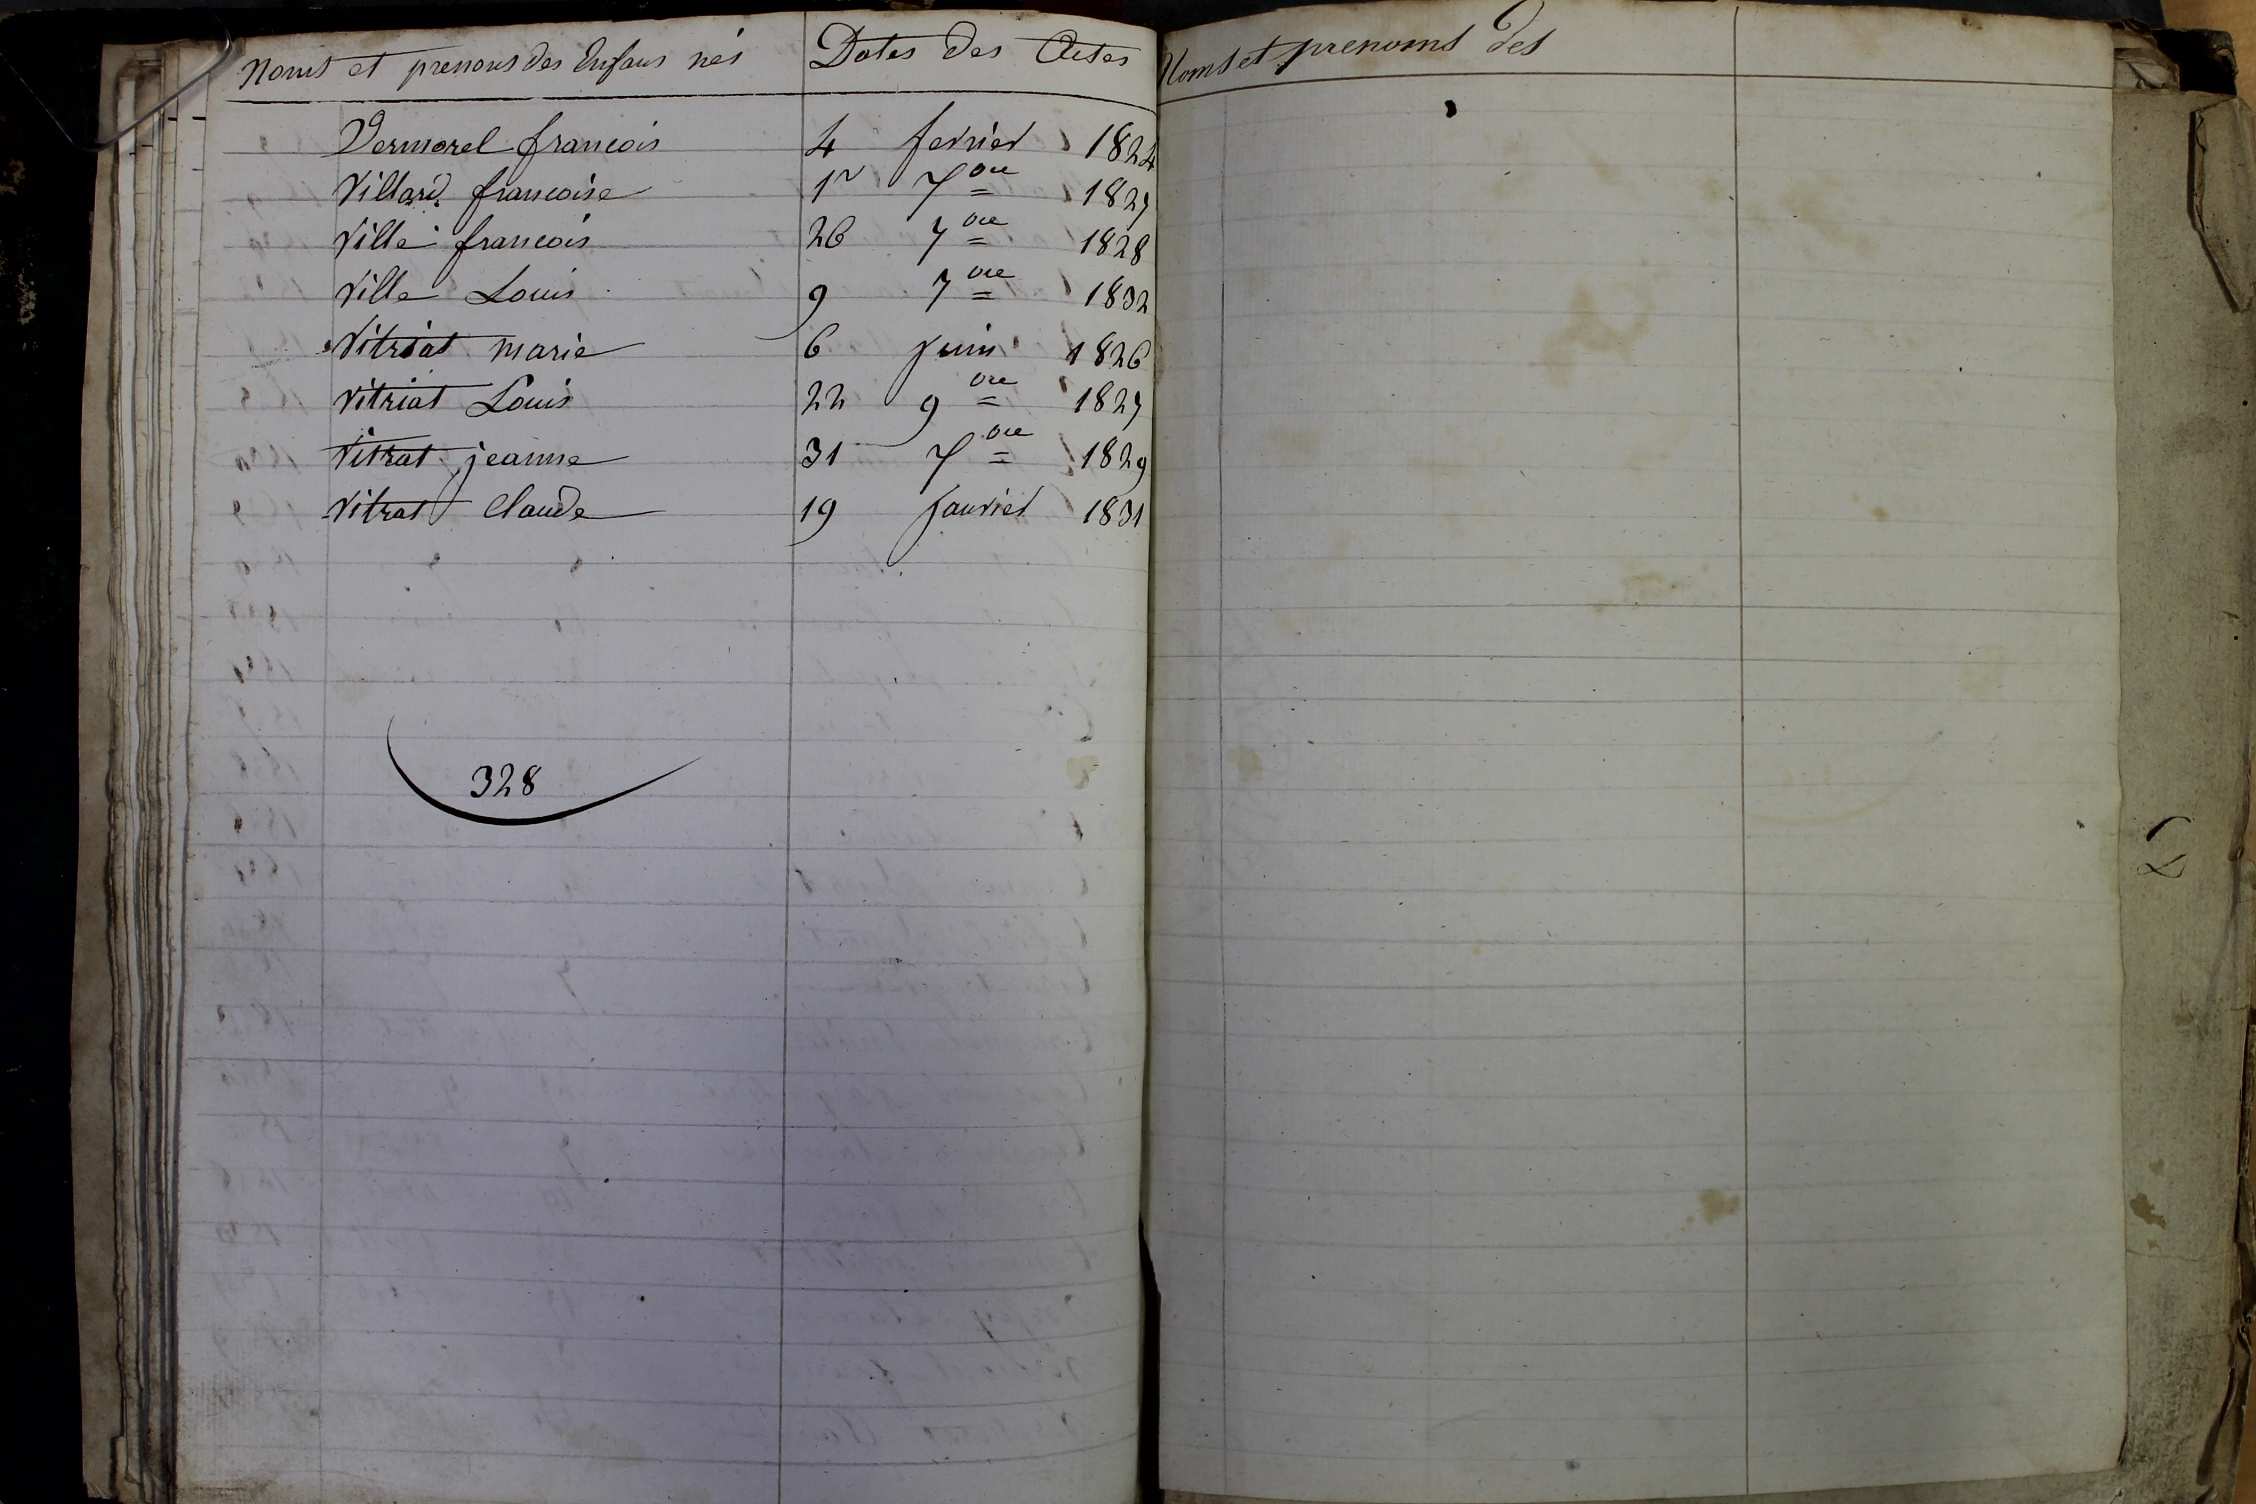 Noms et prenoms des Enfans nés Dates des Actes
Vermorel francois 4 fevrier 1824
Villard francoise 1r 7bre 1827
Ville francois 26 7bre 1828
Ville Louis 9 7bre 1832
Vitriat marie 6 juin 1826
Vitriat Louis 22 9bre 1827
Vitrat jeanne 31 7bre 1829
Vitrat Claude 19 janvier 1831
328
Noms et prenoms des